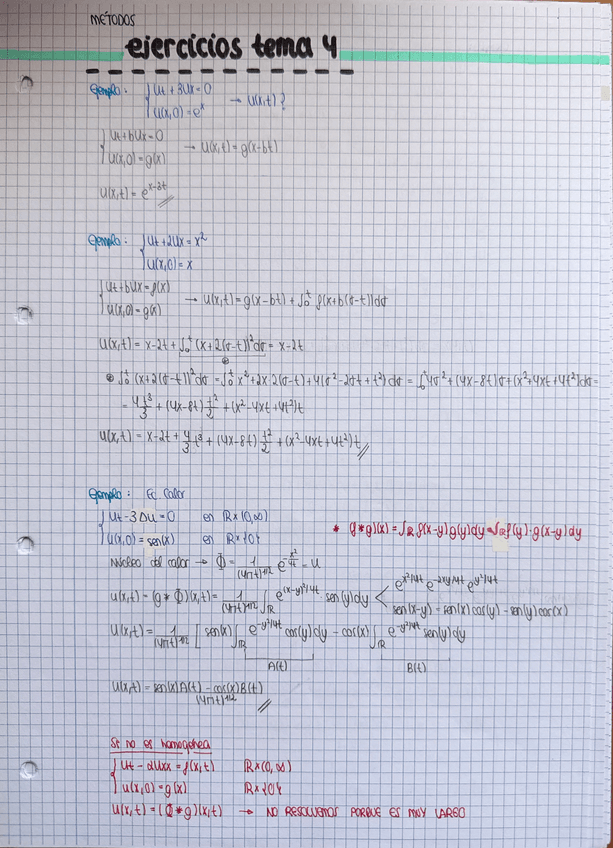 MÉTODOS
ejercicios tema 4
Ejemplo: { Ut + 3Ux = 0
u(x,0) = e^x → u(x,t)?
{ Ut + bUx = 0
u(x,0) = g(x) → u(x,t) = g(x-bt)
u(x,t) = e^{x-3t}
Ejemplo: { Ut + 2Ux = x²
u(x,0) = x
{ Ut + bUx = f(x)
u(x,0) = g(x) → u(x,t) = g(x-bt) + ∫₀ᵗ f(x+b(σ-t))dσ
u(x,t) = x-2t + ∫₀ᵗ (x+2(σ-t))²dσ = x-2t
⊛ ∫₀ᵗ (x+2(σ-t))²dσ = ∫₀ᵗ x²+2x·2(σ-t)+4(σ²-2σt+t²)dσ = ∫₀ᵗ 4σ²+(4x-8t)σ+(x²-4xt+4t²)dσ =
= 4 t³/3 + (4x-8t) t²/2 + (x²-4xt+4t²)t
u(x,t) = x-2t + 4/3 t³ + (4x-8t) t²/2 + (x²-4xt+4t²)t
Ejemplo: Ec Calor
{ Ut - 3Δu = 0 en R×(0,∞)
u(x,0) = sen(x) en R×{0}
* f*g)(x) = ∫_R f(x-y)g(y)dy = ∫_R f(y)·g(x-y)dy
Núcleo del calor → Φ = 1/(4πt)^{1/2} e^{-x²/4t} = u
u(x,t) = (g*Φ)(x,t) = 1/(4πt)^{1/2} ∫_R e^{(x-y)²/4t} · sen(y)dy < e^{x²/4t} e^{-2xy/4t} e^{y²/4t}
sen(x-y) = sen(x)cos(y) - sen(y)cos(x)
u(x,t) = 1/(4πt)^{1/2} [ sen(x)∫_R e^{-y²/4t} cos(y)dy - cos(x)∫_R e^{-y²/4t} sen(y)dy
A(t) B(t)
u(x,t) = sen(x)A(t) - cos(x)B(t)
(4πt)^{1/2}
Si no es homogénea
{ Ut - 2Uxx = f(x,t) R×(0,∞)
u(x,0) = g(x) R×{0}
u(x,t) = (Φ*g)(x,t) → NO RESOLVEMOS PORQUE ES MUY LARGO